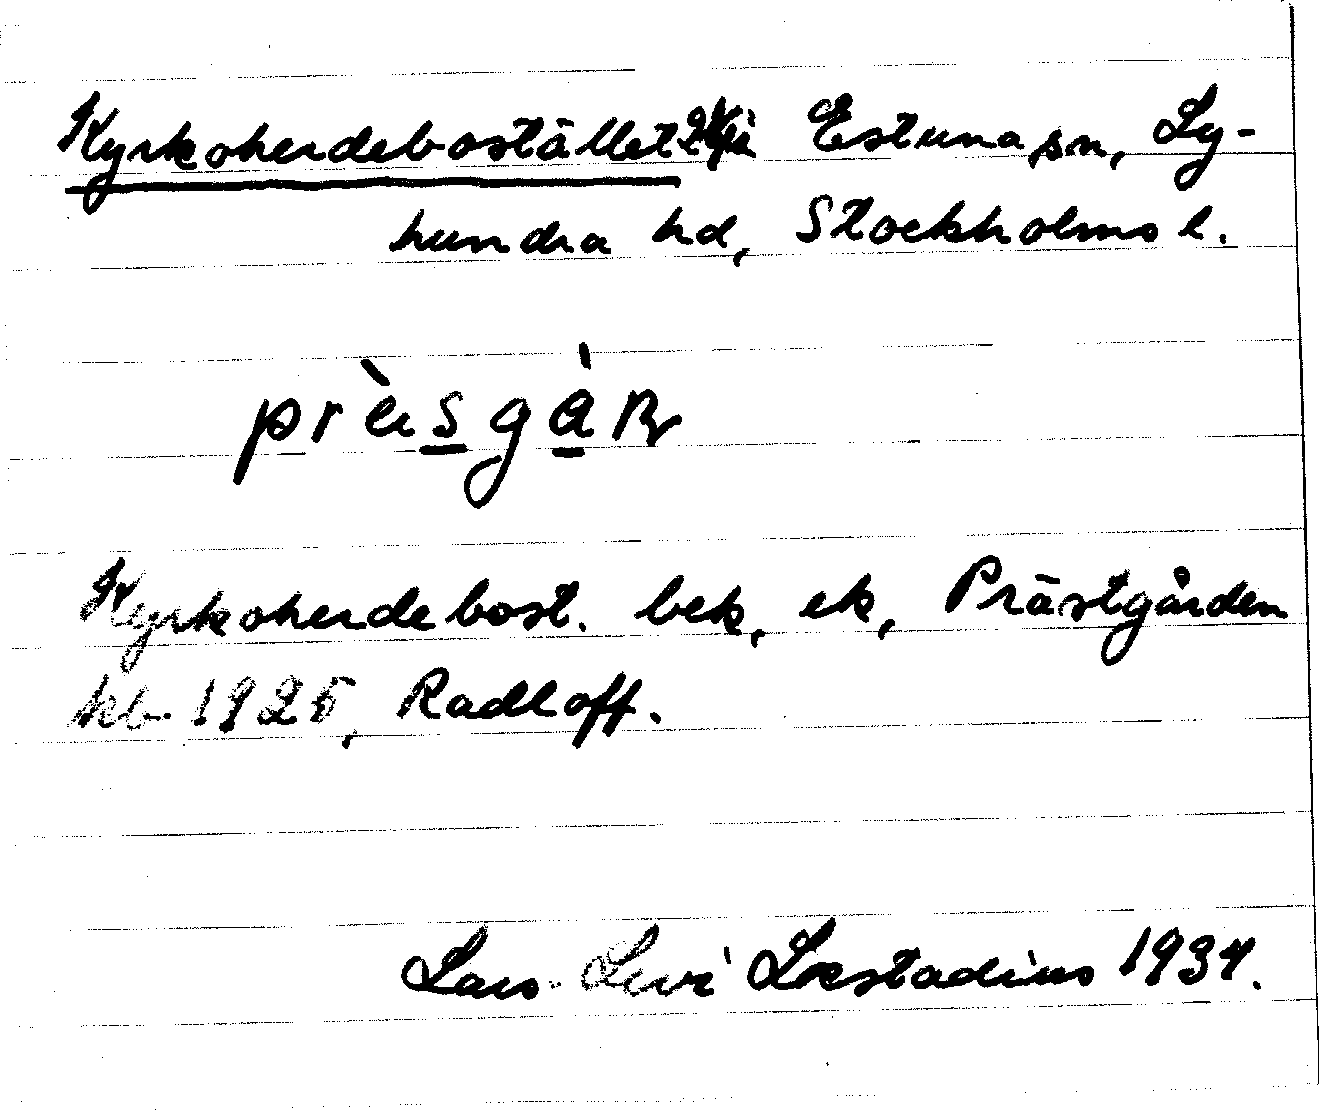 Kyrkoherdebostället Estuna sn, Ly-
hundra hd, Stockholms l.
prä̀sgàṉ
Kyrkoherdebost. bek, ek, Prästgården
kb 1925, Radloff.
Lars-Levi Læstadius 1934.